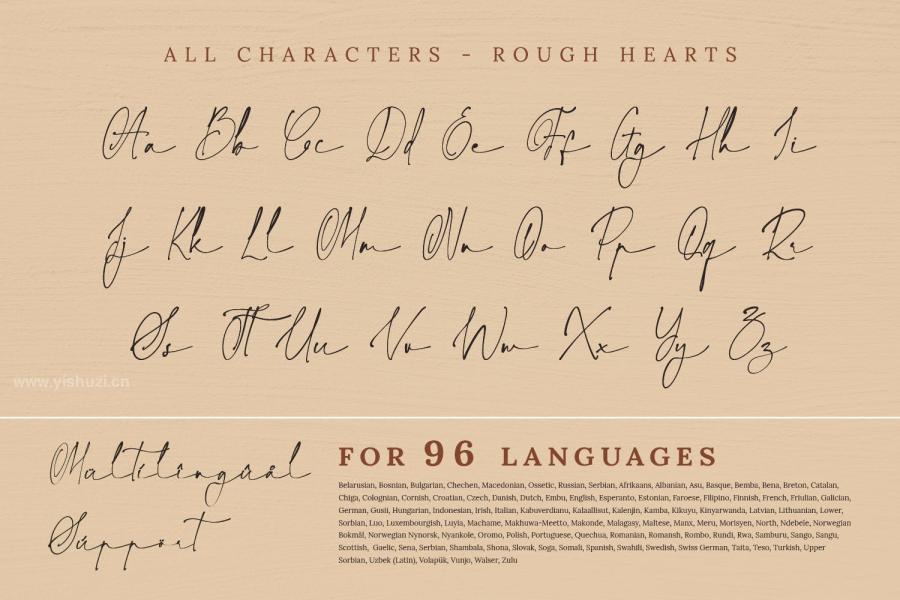 ALL CHARACTERS - ROUGH HEARTS
Aa Bb Cc Dd Ee Ff Gg Hh Ii
Jj Kk Ll Mm Nn Oo Pp Qq Rr
Ss Tt Uu Vv Ww Xx Yy Zz
www.yishuzi.cn
Multilingual
Support
FOR 96 LANGUAGES
Belarusian, Bosnian, Bulgarian, Chechen, Macedonian, Ossetic, Russian, Serbian, Afrikaans, Albanian, Asu, Basque, Bemba, Bena, Breton, Catalan,
Chiga, Colognian, Cornish, Croatian, Czech, Danish, Dutch, Embu, English, Esperanto, Estonian, Faroese, Filipino, Finnish, French, Friulian, Galician,
German, Gusii, Hungarian, Indonesian, Irish, Italian, Kabuverdianu, Kalaallisut, Kalenjin, Kamba, Kikuyu, Kinyarwanda, Latvian, Lithuanian, Lower,
Sorbian, Luo, Luxembourgish, Luyia, Machame, Makhuwa-Meetto, Makonde, Malagasy, Maltese, Manx, Meru, Morisyen, North, Ndebele, Norwegian
Bokmål, Norwegian Nynorsk, Nyankole, Oromo, Polish, Portuguese, Quechua, Romanian, Romansh, Rombo, Rundi, Rwa, Samburu, Sango, Sangu,
Scottish, Gaelic, Sena, Serbian, Shambala, Shona, Slovak, Soga, Somali, Spanish, Swahili, Swedish, Swiss German, Taita, Teso, Turkish, Upper
Sorbian, Uzbek (Latin), Volapük, Vunjo, Walser, Zulu